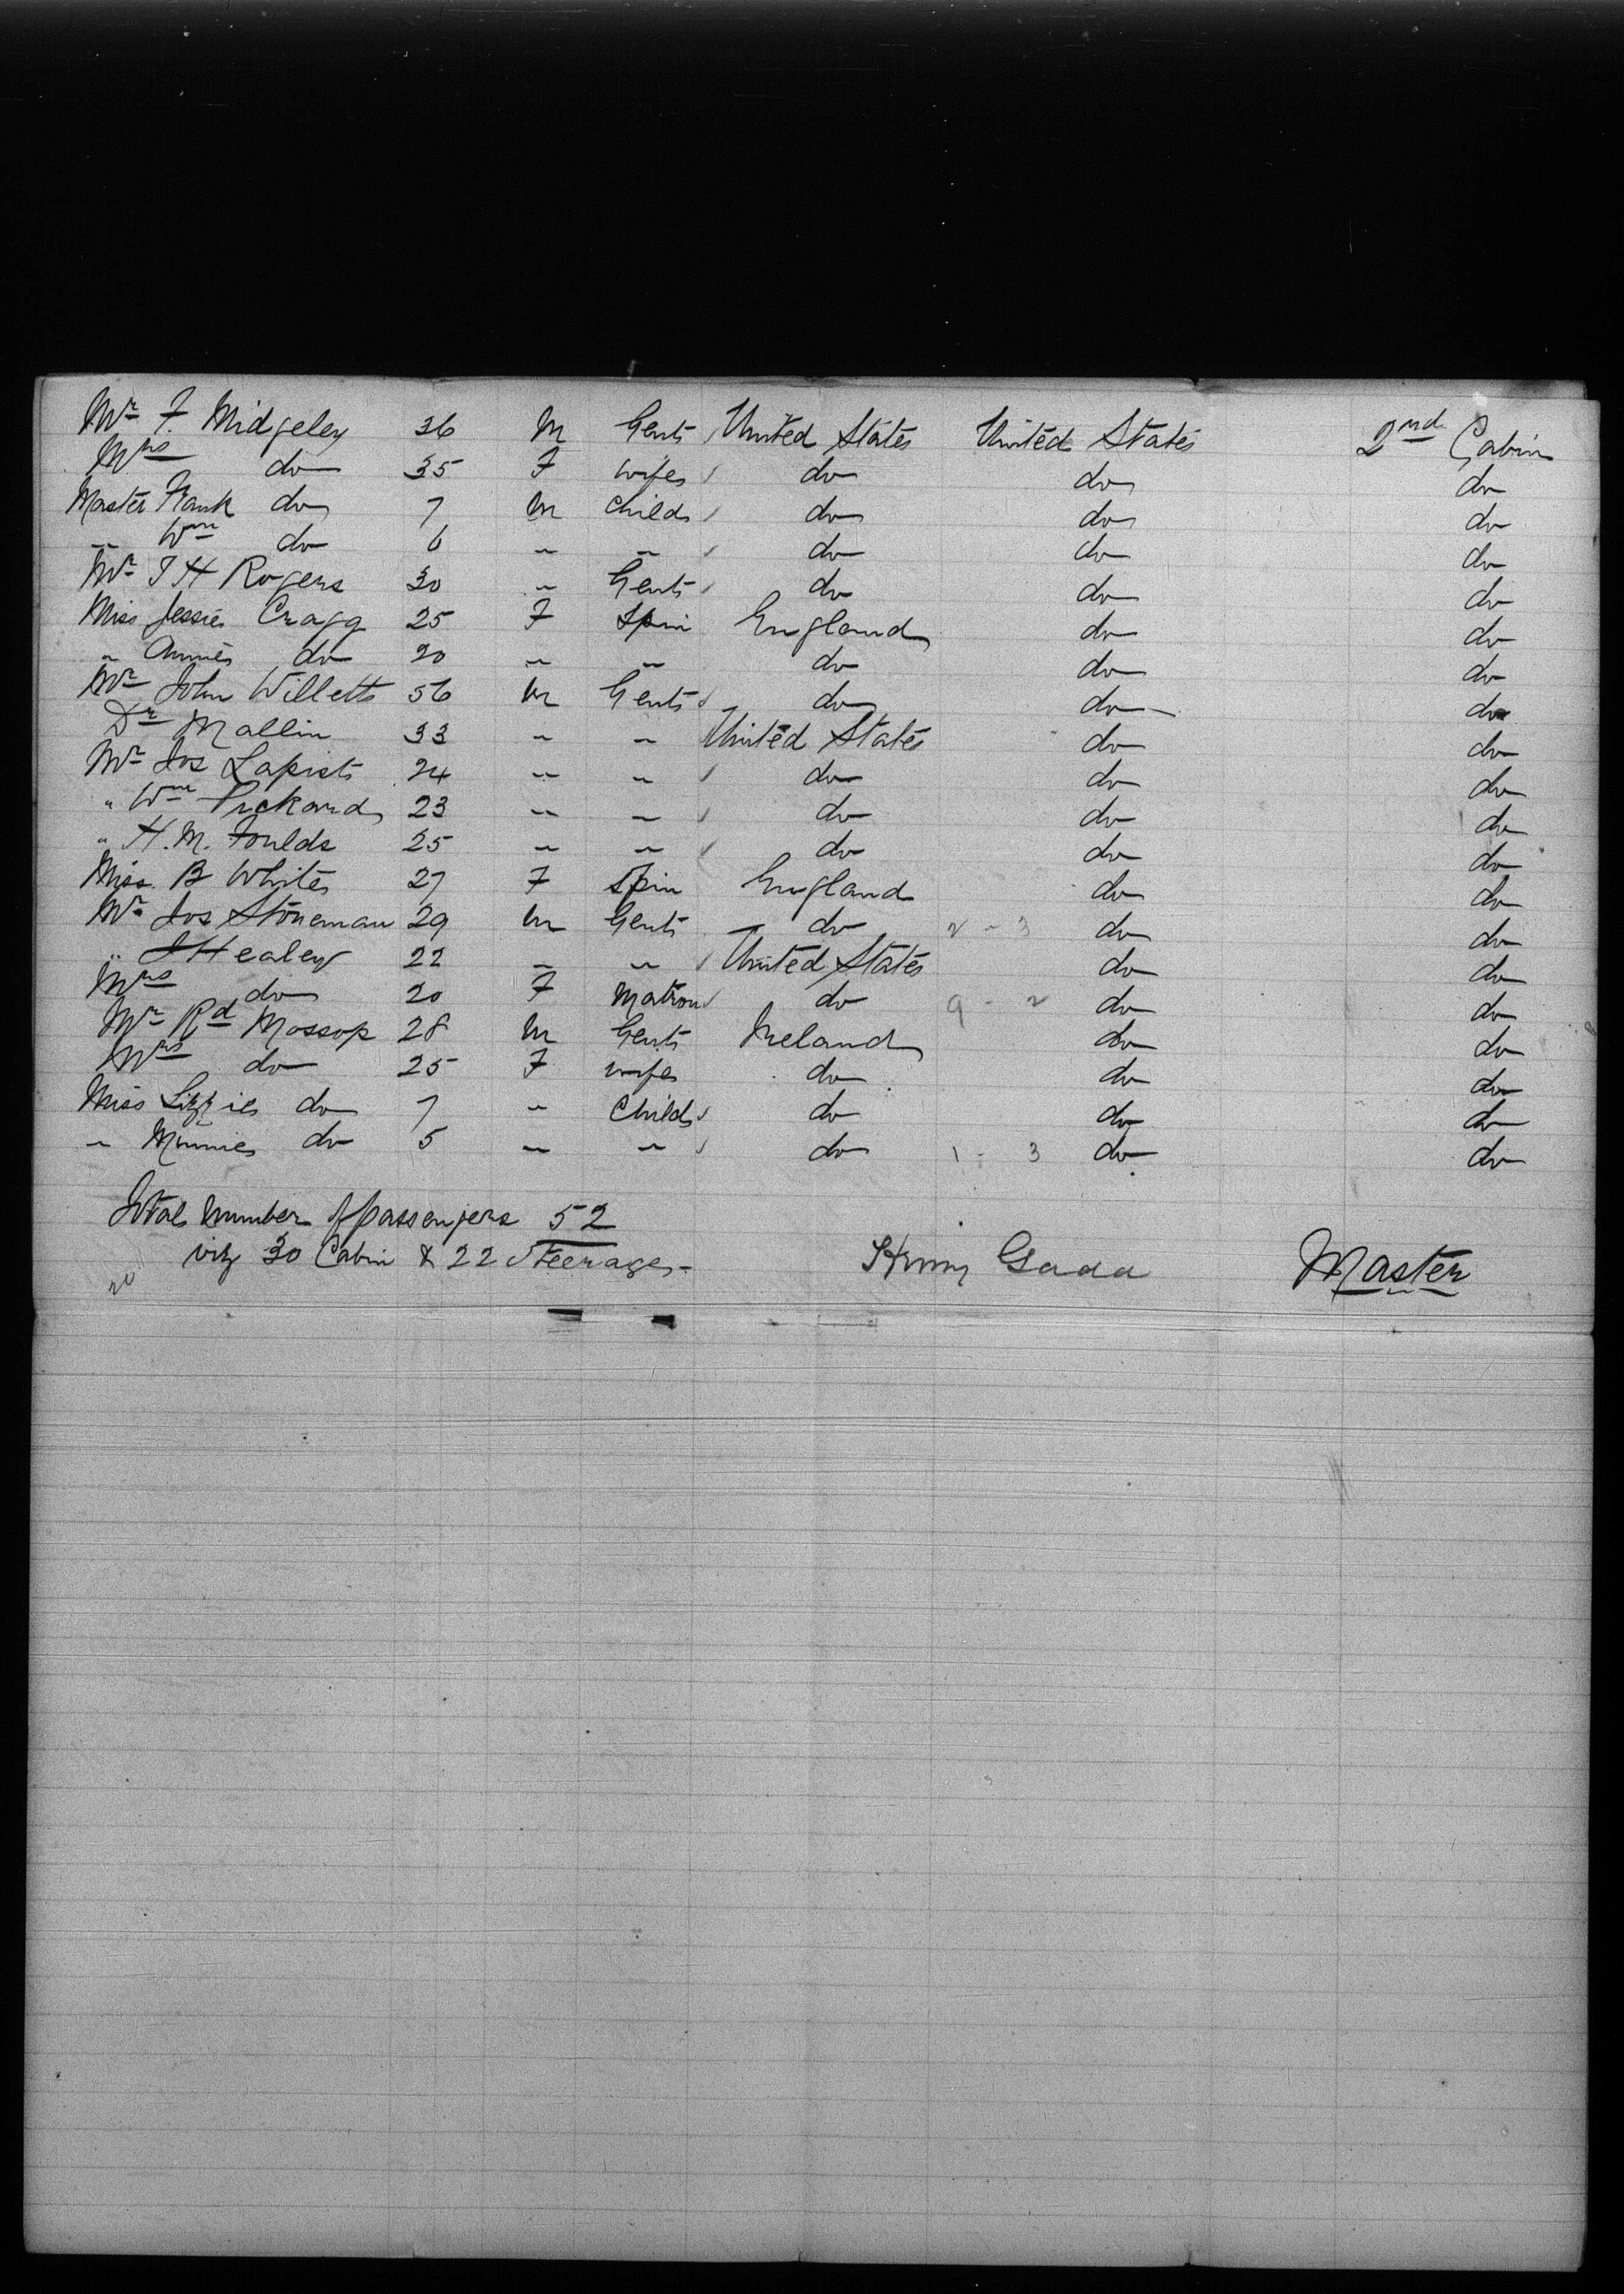 Mr F. Midgeley 36 M Gent United States United States 2nd Cabin
Mrs do 35 F wife do do do
Master Frank do 7 M Child do do do
" Wm do 6 " " do do do
Mr J H Rogers 30 " Gent do do do
Miss Jessie Cragg 25 F Spin England do do
" Annie do 20 " " do do do
Mr John Willetts 56 M Gent do do do
Dr Mallin 33 " " United States do do
Mr Jos Lapish 24 " " do do do
" Wm Pickard 23 " " do do do
" H. M. Foulds 25 " " do do do
Miss B White 27 F Spin England do do
Mr Jos Stoneman 29 M Gent do 2 - 3 do do
" J Healey 22 " " United States do do
Mrs do 20 F Matron do 9 - 2 do do
Mr Rd Mossop 28 M Gent Ireland do do
Mrs do 25 F wife do do do
Miss Lizzie do 7 " Child do do do
" Minnie do 5 " " do 1 - 3 do do
Total Number of passengers 52
viz 30 Cabin & 22 Steerage Master